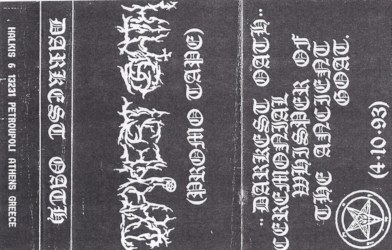 HALKIS 6 13231 PETROUPOLI ATHENS GREECE
DARKEST OATH
DARKEST OATH
(PROMO TAPE)
·· DARKEST OATH ··
CEREMONIAL
WHISPER OF
THE ANCIENT
GOAT.
(4.10.93)